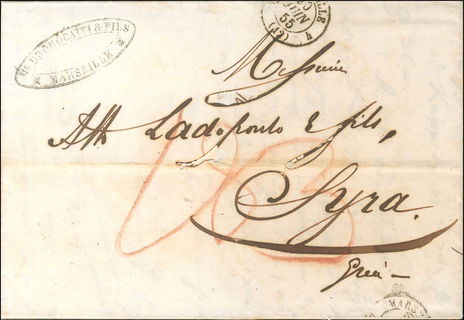 & FILS
MARSEILLE
JUIN
55
(12)
Messieurs
Ath Ladopoulo & fils,
Syra.
Grèce
MARS